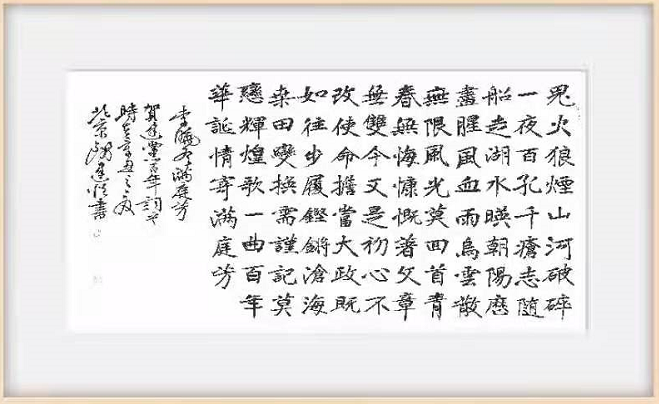 鬼火狼煙山河破碎
一夜百孔千瘡志隨
船走湖水暎朝陽歷
盡腥風血雨烏雲散
無限風光莫回首青
春無悔慷慨著文章
無雙今又是初心不
改使命擔當大政既
如往步履鏗鏘滄海
桑田變換需謹記莫
戀輝煌歌一曲百年
華誕情寄滿庭芳
滿庭芳
賀建黨百年詞
時在辛丑之夏
北京建書